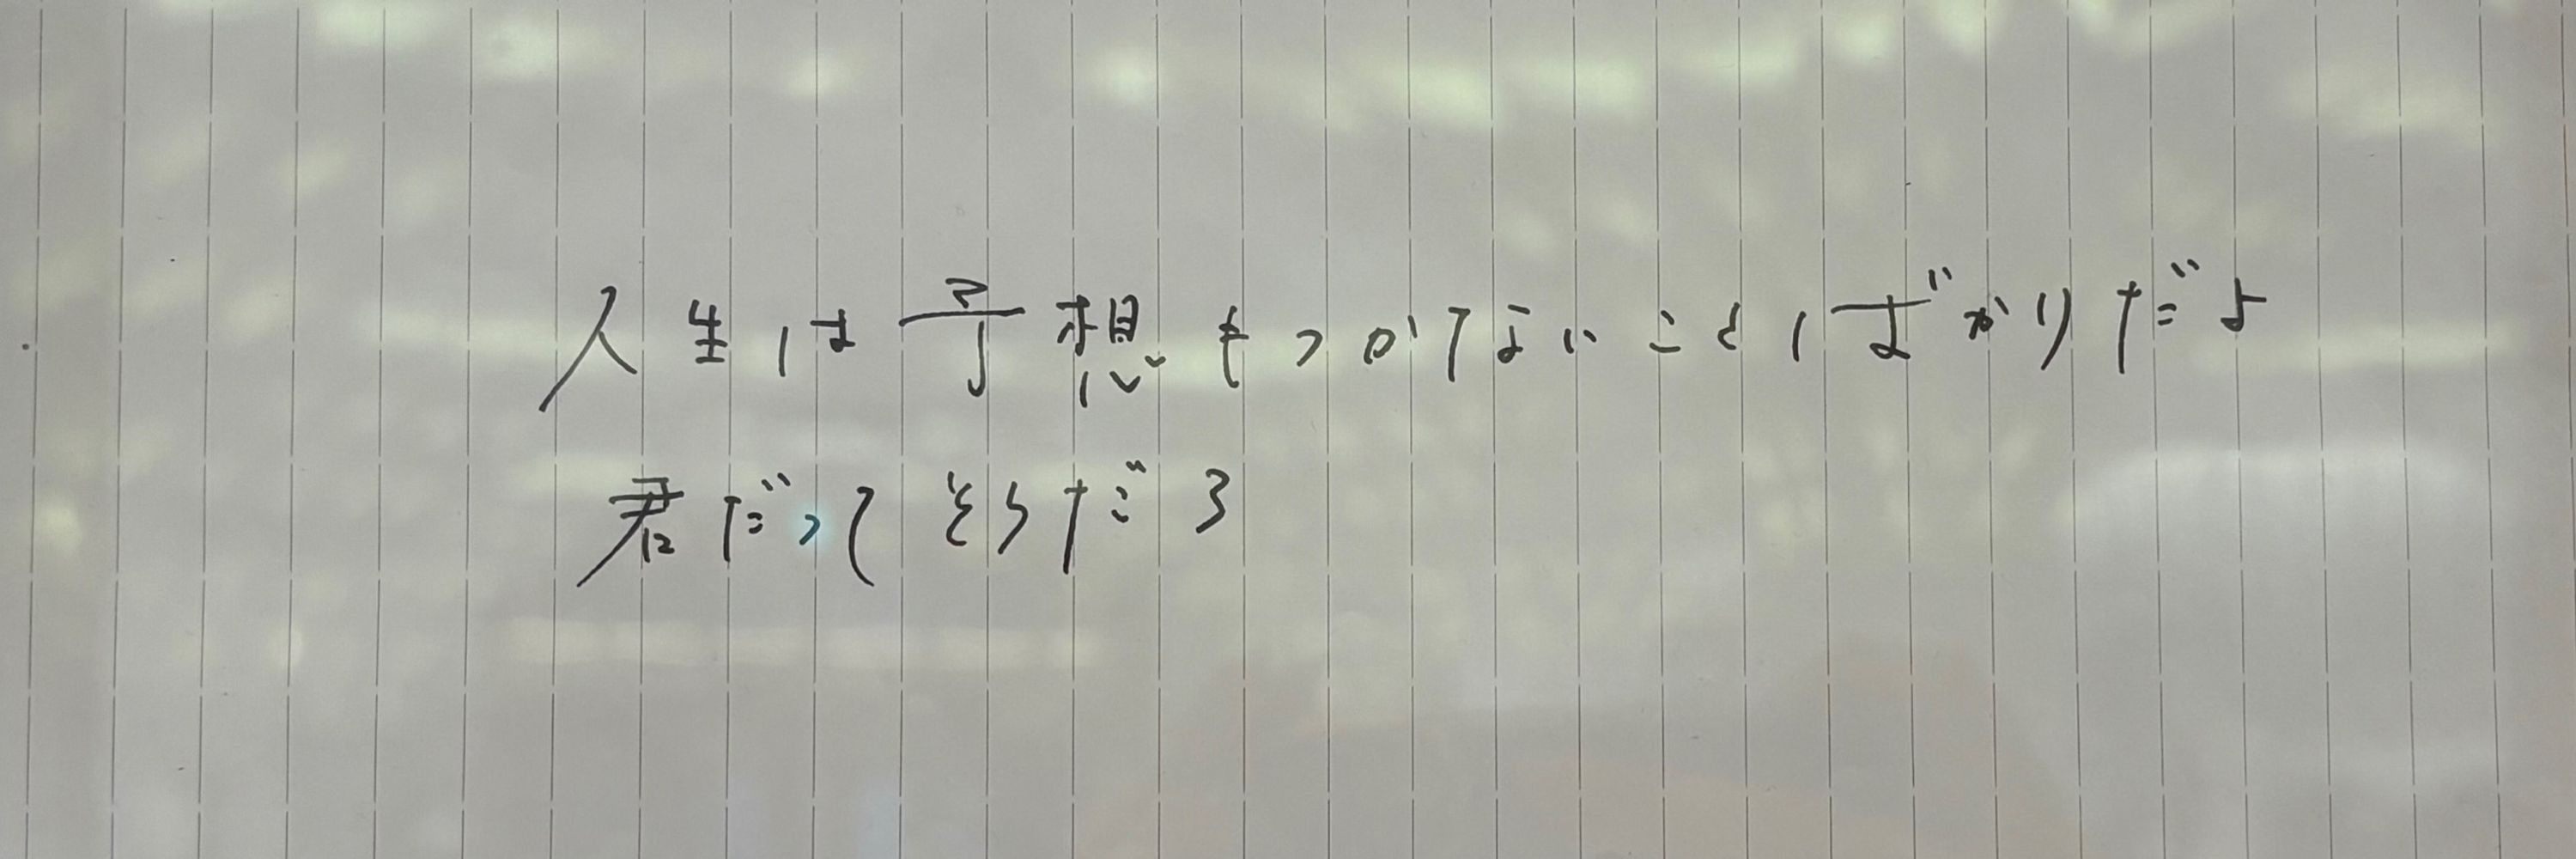 人生は予想もつかないことばかりだよ
君だってそうだろ